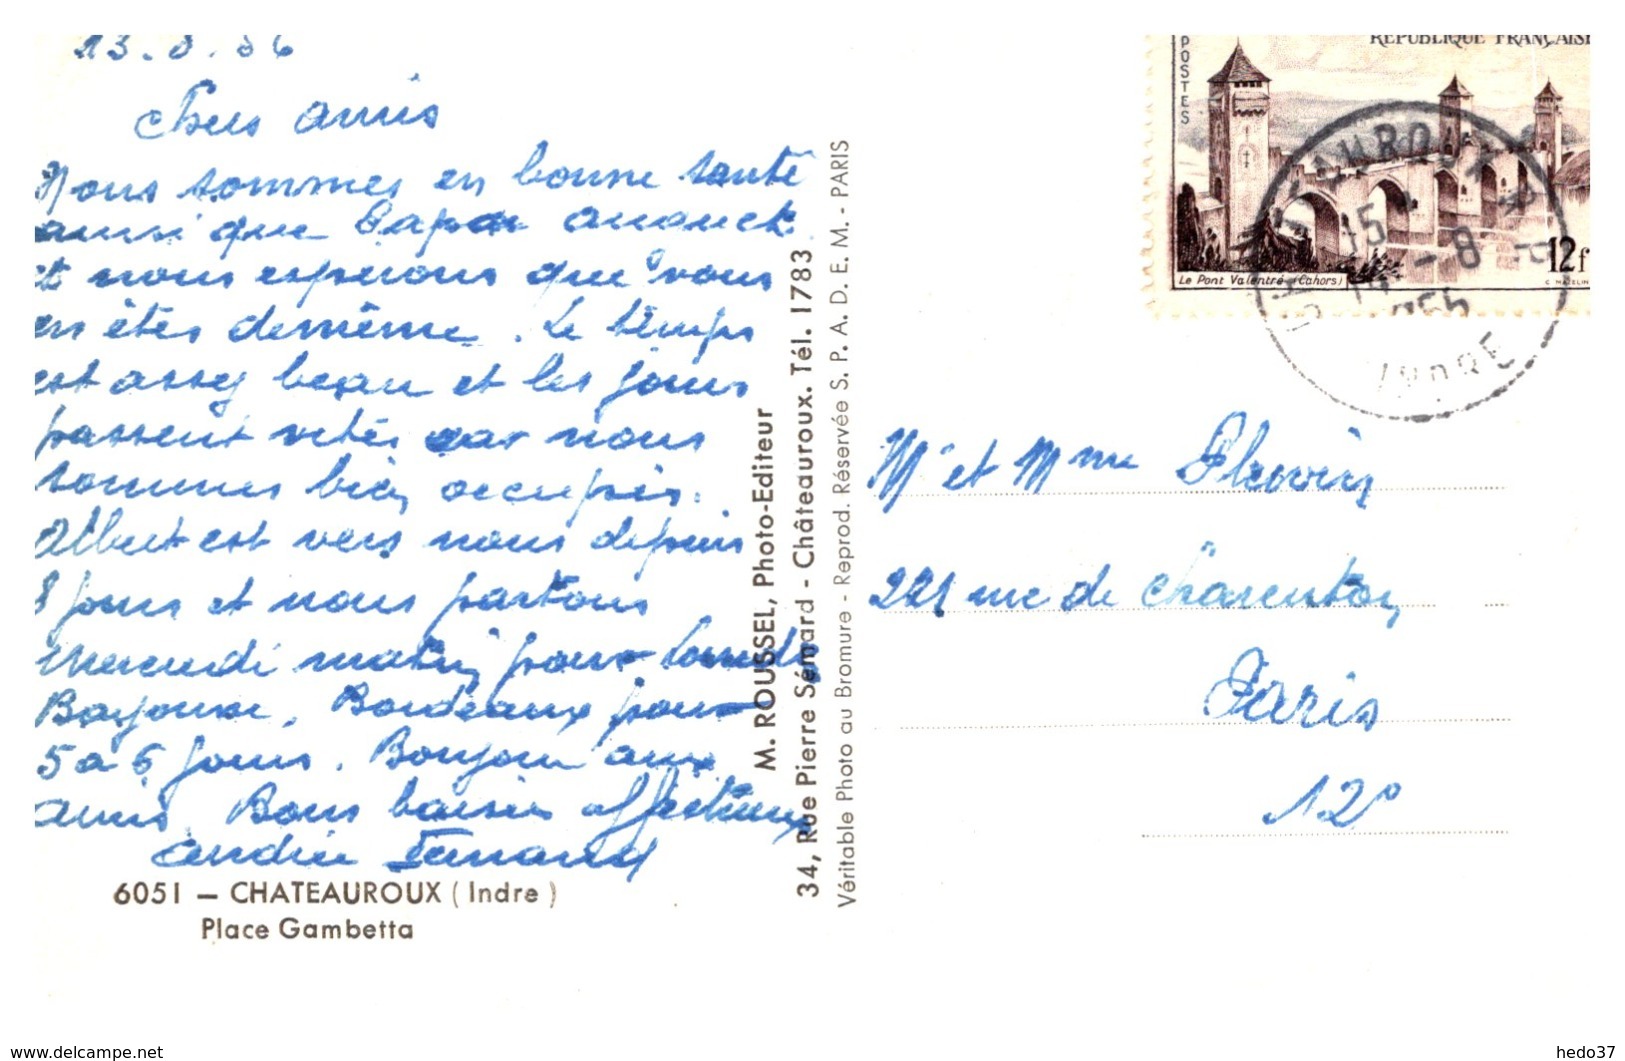 13.8.56
Chers amis
Nous sommes en bonne santé
ainsi que
et nous espérons que vous
en êtes de même. Le temps
est assez beau et les jours
passent vites car nous
sommes bien occupés.
Albert est vers nous depuis
8 jours et nous partons
Mercredi matin pour
Bayonne, Bordeaux pour
5 a 6 jours. Bonjour aux
amis. Bons baisers affectueux
Fernand
6051 — CHATEAUROUX (Indre)
Place Gambetta
M. ROUSSEL, Photo-Editeur
34, Rue Pierre Sémard - Châteauroux. Tél. 1783
Véritable Photo au Bromure - Reprod. Réservée S. P. A. D. E. M. - PARIS
POSTES
REPUBLIQUE FRANÇAISE
12f
Le Pont Valentré (Cahors)
C. MAZELIN
15
14 - 8
INDRE
Mr et Mme
221 rue de Charenton
Paris
12e
delcampe.net
hedo37